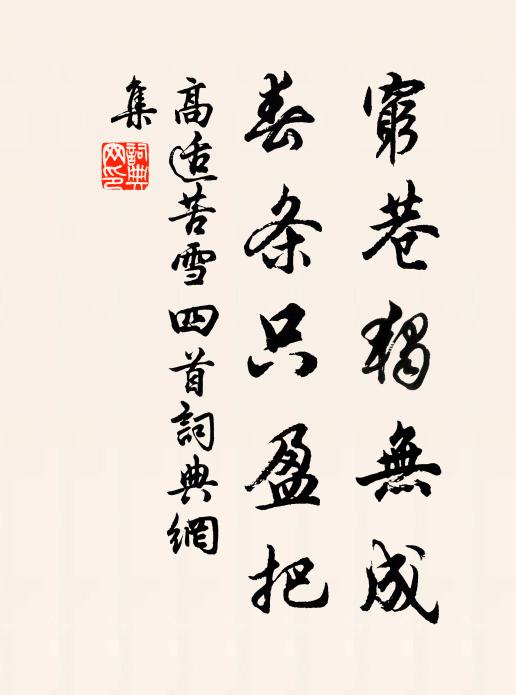 窮巷獨無成
春条只盈把
高适苦雪四首詞典網
集
詞典網印